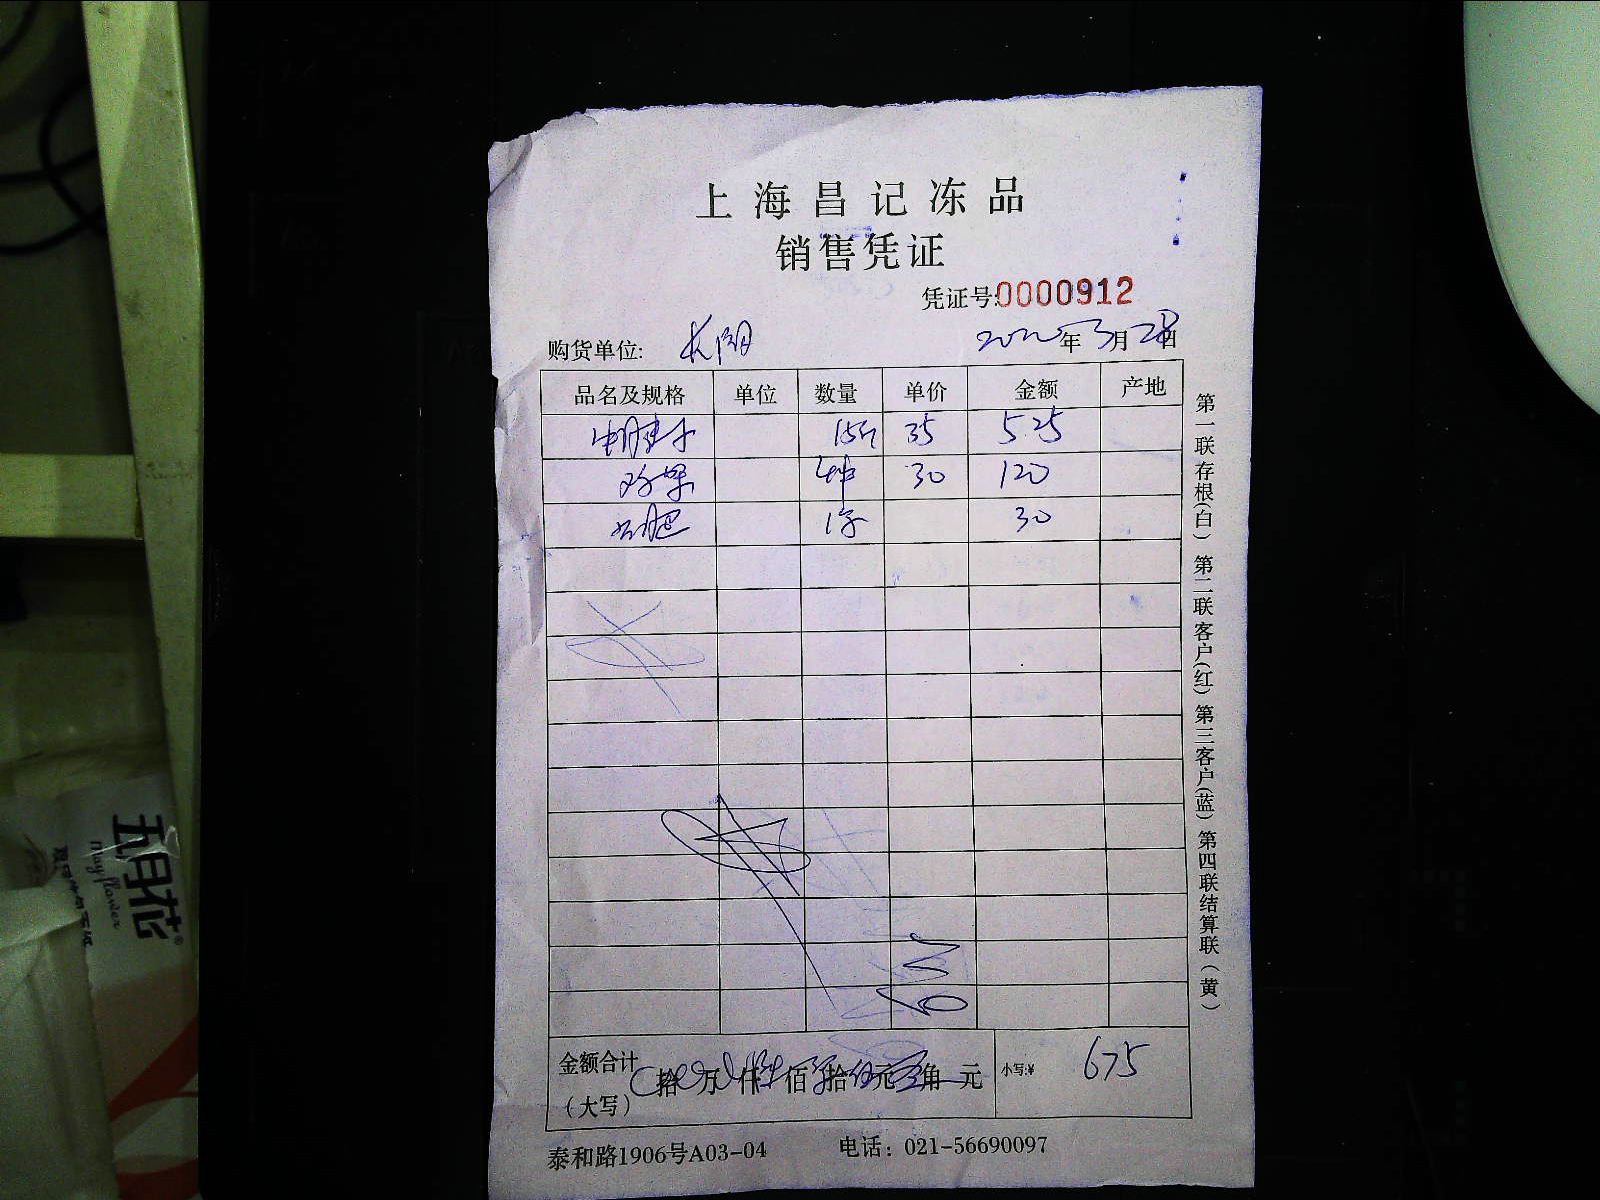 上海昌记冻品
销售凭证
凭证号:0000912
购货单位:
2022年3月28日
品名及规格 单位 数量 单价 金额 产地
牛腱子 15斤 35 525
30 120
30
金额合计(大写) 拾 万 仟 佰 拾 元 角 元 小写:¥ 675
泰和路1906号A03-04 电话：021-56690097
第一联存根(白) 第二联客户(红) 第三客户(蓝) 第四联结算联(黄)
五月花®
Mayflower